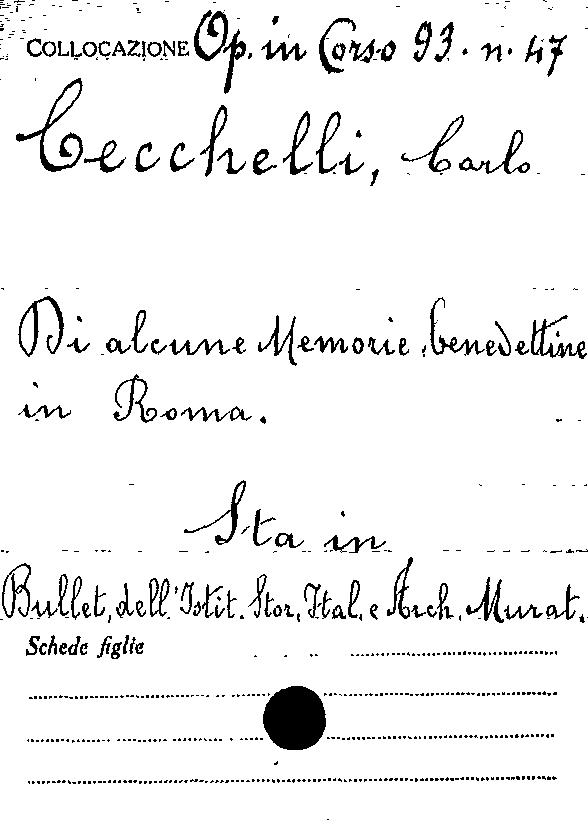 COLLOCAZIONE Op. in Corso 93. n. 47
Cecchelli, Carlo
Di alcune Memorie benedettine
in Roma.
Sta in
Bullet. dell'Istit. Stor. Ital. e Arch. Murat.
Schede figlie